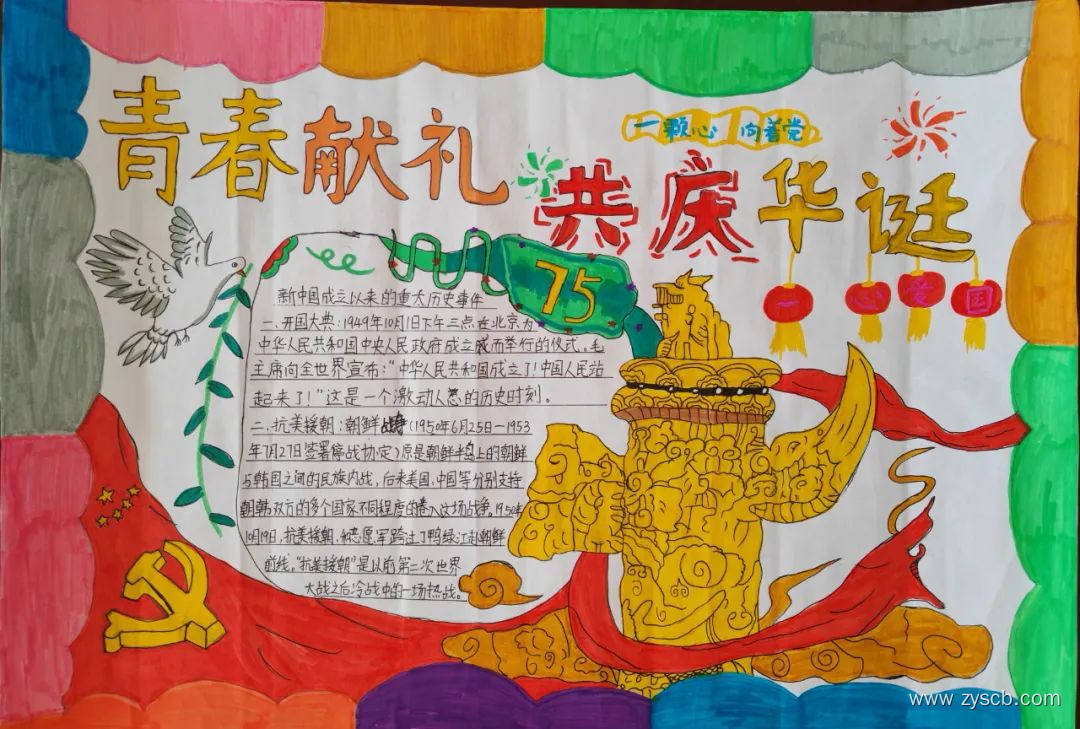 青春献礼
一颗心 向着党
共庆华诞
75
一心爱国
新中国成立以来的重大历史事件
一、开国大典:1949年10月1日下午三点在北京为
中华人民共和国中央人民政府成立威而举行的仪式。毛
主席向全世界宣布:"中华人民共和国成立了!中国人民站
起来了!"这是一个激动人的历史时刻。
二、抗美援朝:朝鲜战争(1950年6月25日—1953
年7月27日签署停战协定)原是朝鲜半岛上的朝鲜
与韩国之间的民族内战,后来美国、中国等分别支持
朝韩双方的多个国家不同程度的卷入这场战争,1950年
10月19日,抗美援朝,志愿军跨过了鸭绿江赴朝鲜
前线,"抗美援朝"是以前第二次世界
大战之后冷战中的一场热战。
www.zyscb.com